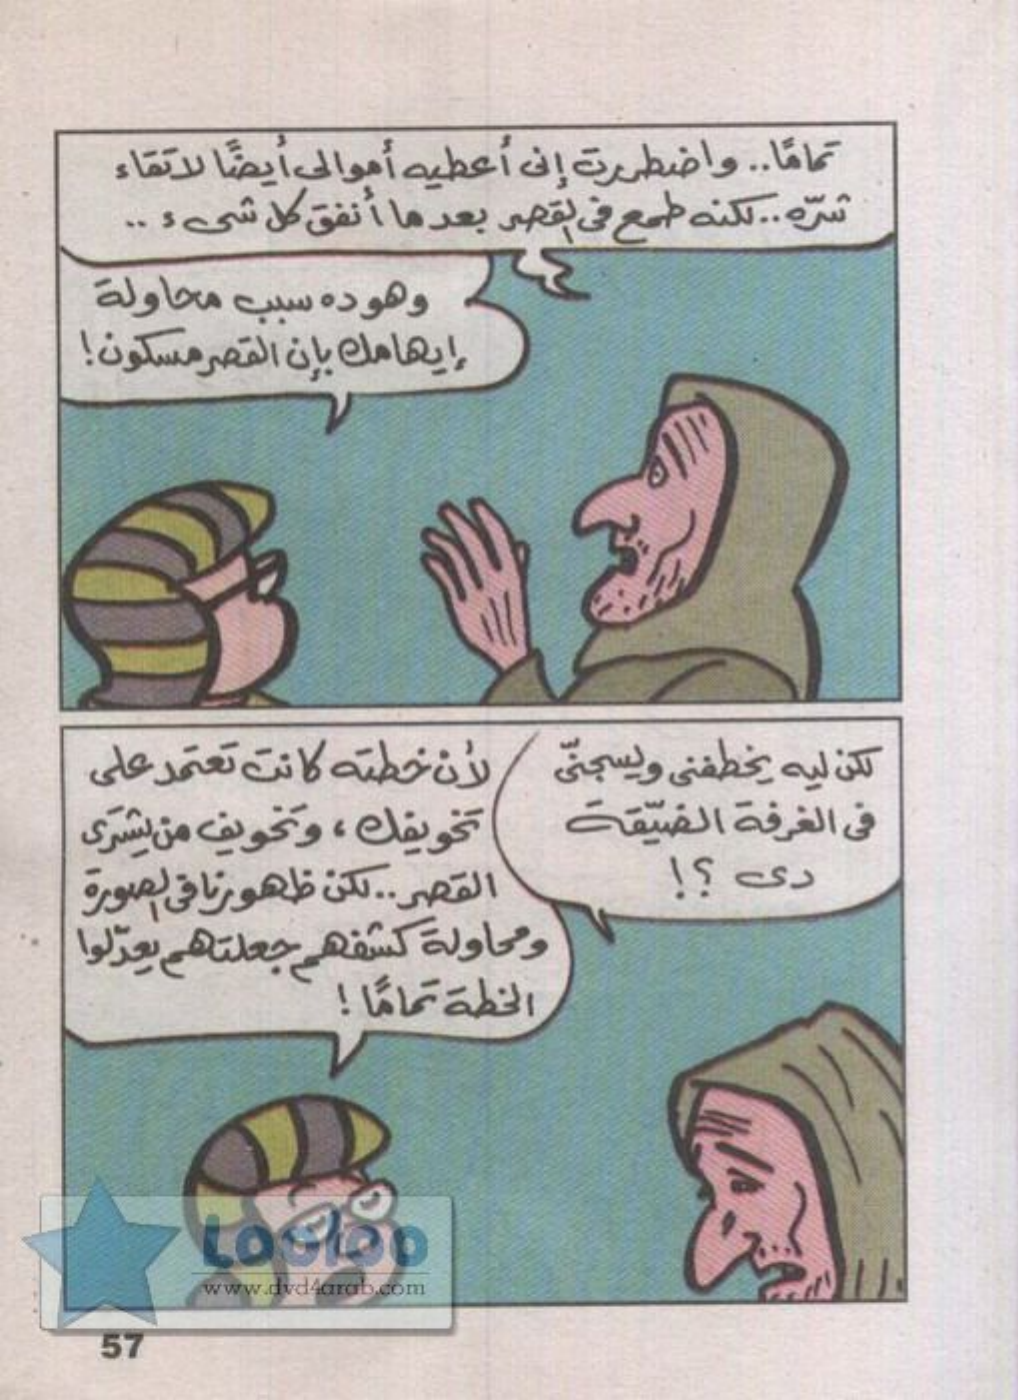 تمامًا.. واضطررت إنى أعطيه أموالى أيضًا لاتقاء
شرّه.. لكنه طمع فى القصر بعد ما أنفق كل شىء ..
وهو ده سبب محاولة
إيهامك بإن القصر مسكون!
لكن ليه يخطفنى ويسجنّى
فى الغرفة الضيّقة
دى ؟!
لأن خطته كانت تعتمد على
تخويفك ، وتخويف من يشترى
القصر.. لكن ظهورنا فى الصورة
ومحاولة كشفهم جعلتهم يعدّلوا
الخطة تمامًا!
لولولو
www.dvd4arab.com
57